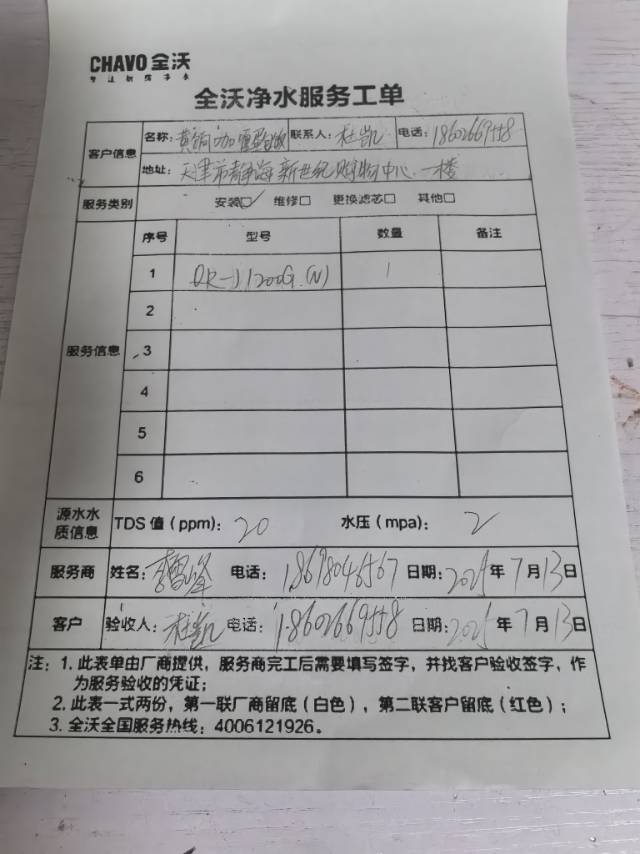 CHAVO 全沃
专注新居净水
全沃净水服务工单
客户信息
名称: 黄铜咖啡 联系人: 杜凯 电话: 18602669558
地址: 天津市静海新世纪购物中心一楼
服务类别 安装☑ 维修□ 更换滤芯□ 其他□
服务信息
序号 型号 数量 备注
1 1200G(N) 1
2
3
4
5
6
源水水质信息 TDS 值 (ppm): 20 水压 (mpa): 2
服务商 姓名: 李雪峰 电话: 18698046567 日期: 2025 年 7 月 13 日
客户 验收人: 杜凯 电话: 18602669558 日期: 2025 年 7 月 13 日
注: 1. 此表单由厂商提供，服务商完工后需要填写签字，并找客户验收签字，作
为服务验收的凭证;
2. 此表一式两份，第一联厂商留底 (白色) ，第二联客户留底 (红色) ;
3. 全沃全国服务热线: 4006121926。